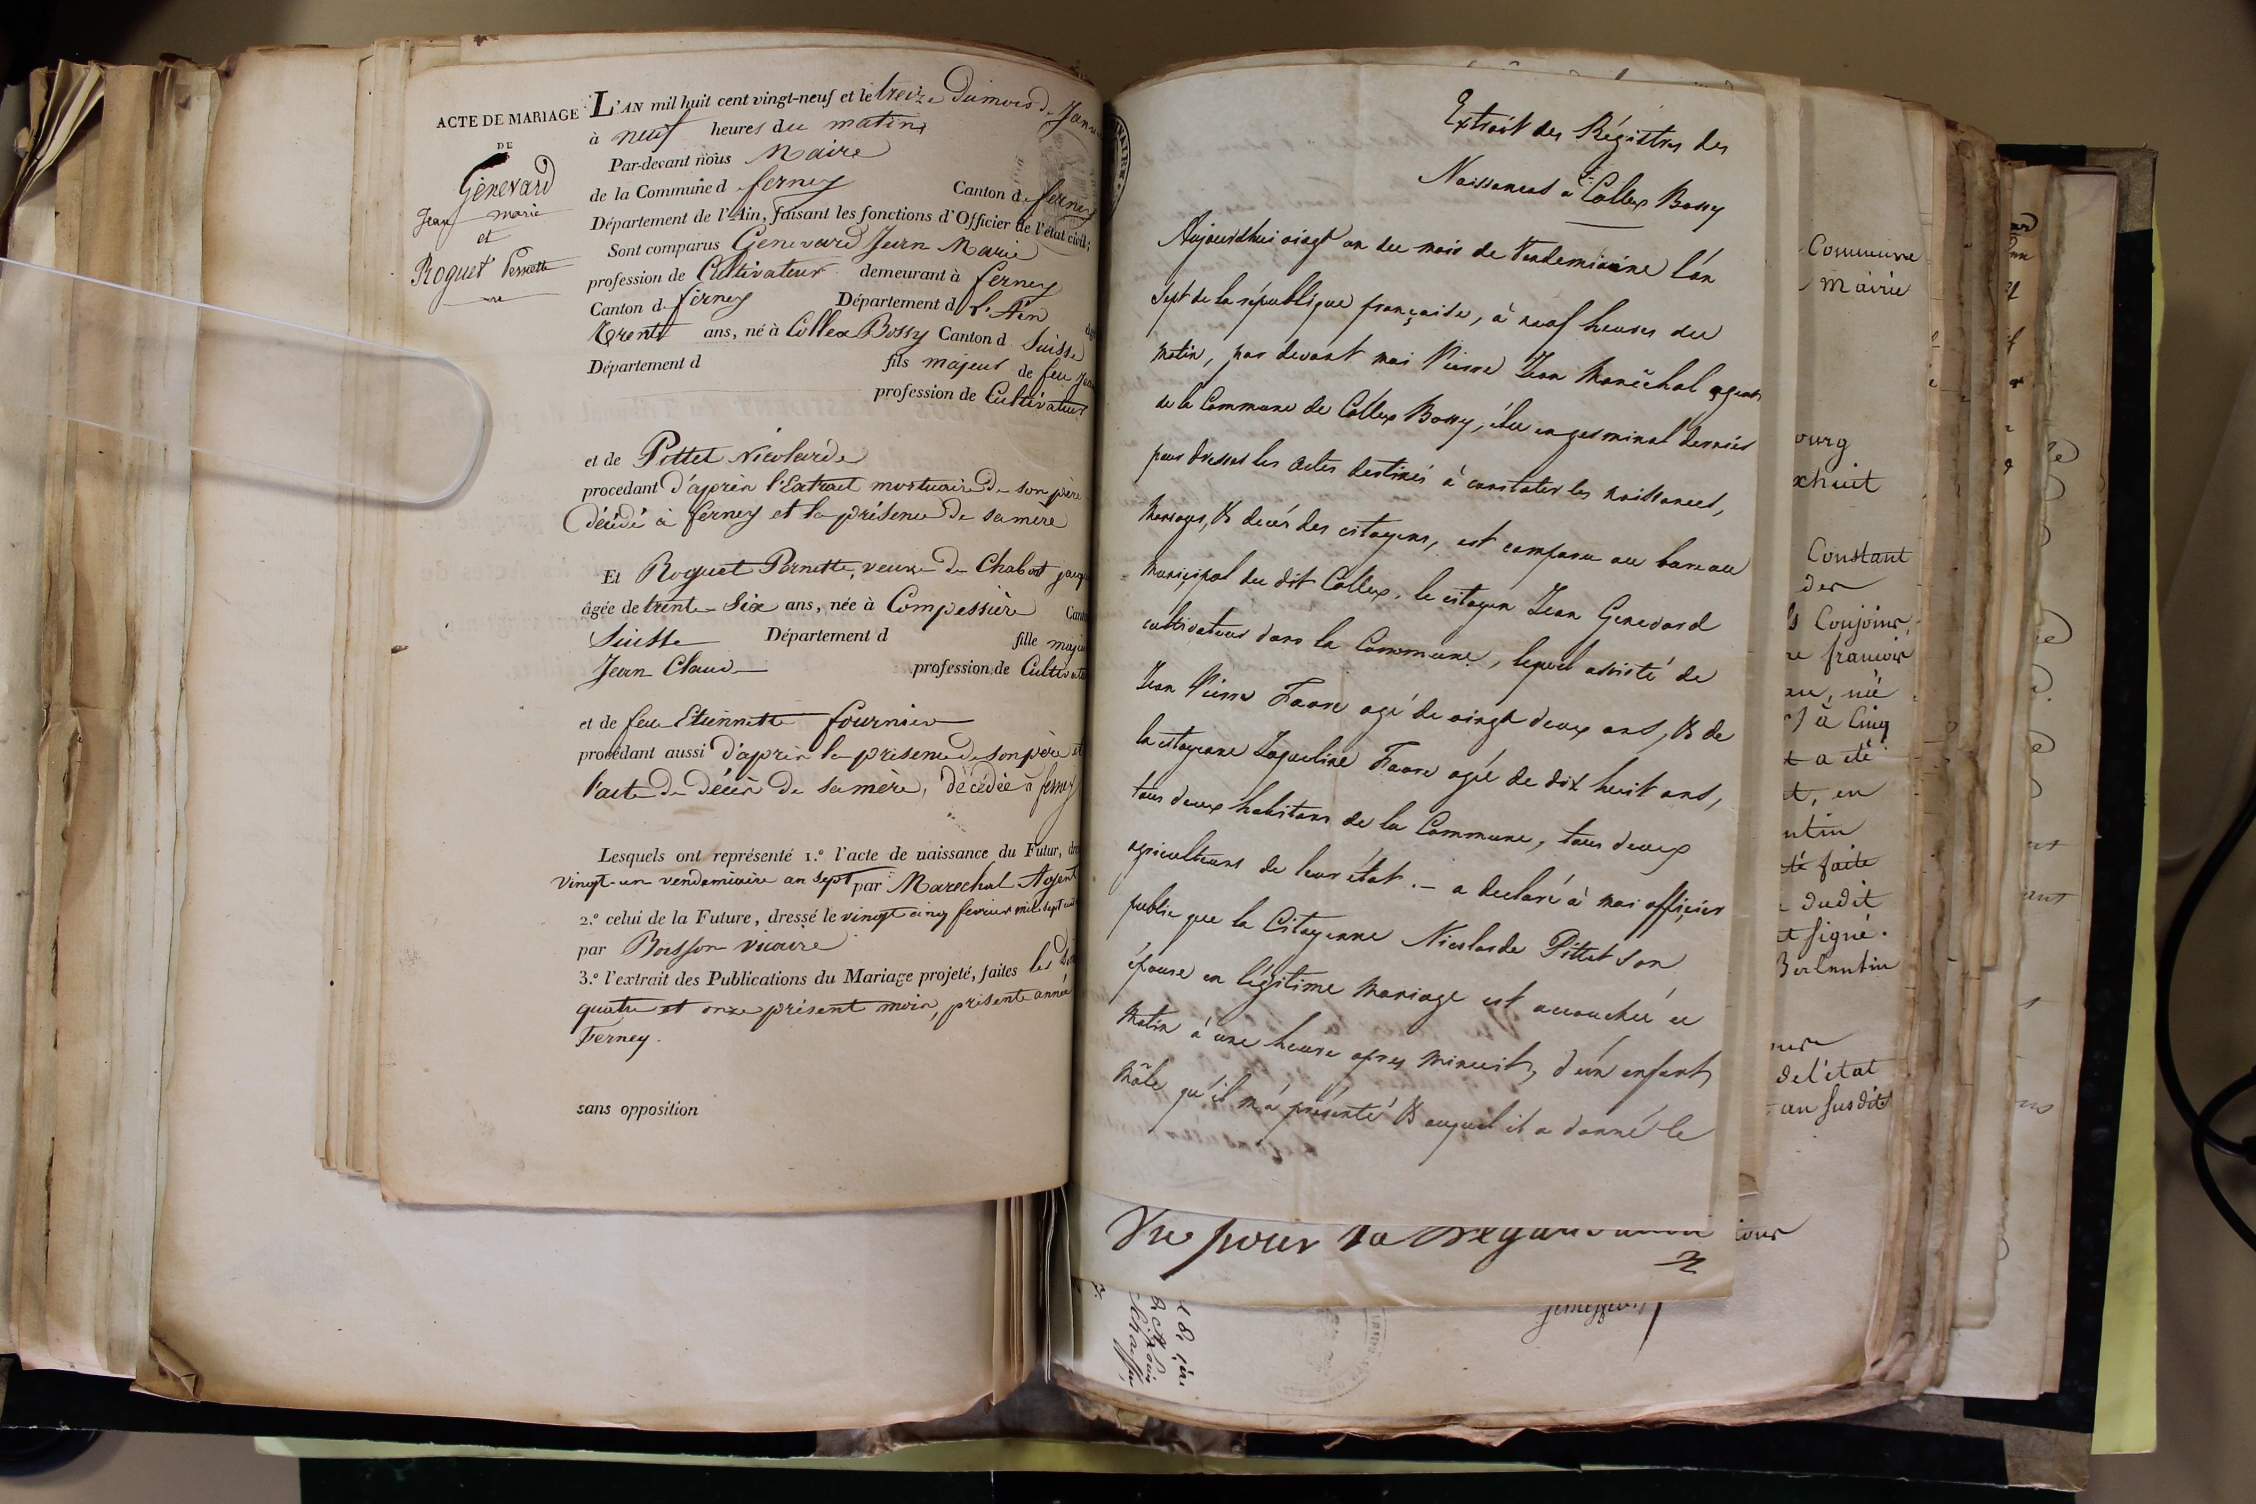 ACTE DE MARIAGE
DE
Genevard
Jean marie
et
Roguet Pernette
L'AN mil huit cent vingt-neuf et le treize Du mois de
à neuf heures du matin
Par-devant nous Maire
de la Commune d ferney Canton de ferney
Département de l'Ain, faisant les fonctions d'Officier de l'état civil;
Sont comparus Genevard Jean Marie
profession de Cultivateur demeurant à ferney
Canton d ferney Département d l'Ain
trente ans, né à Collex Bossy Canton d Suisse
Département d fils majeur de feu
profession de Cultivateur
et de Pittet Nicolarde
procedant d'après l'Extrait mortuaire de son père
décédé à ferney et la présence de sa mère
Et Roguet Pernette, veuve de Chabot
âgée de trente-six ans, née à Compessière
Suisse Département d fille
Jean Claude profession de
et de feu Etiennette fournier
procédant aussi d'après la présence de son père et
l'acte de décès de sa mère, décédée à ferney
Lesquels ont représenté 1.º l'acte de naissance du Futur,
vingt-un vendemiaire an sept par Marechal Agent
2.º celui de la Future, dressé le vingt cinq fevrier mil sept
par Boisson vicaire
3.º l'extrait des Publications du Mariage projeté, faites les
quatre et onze présent mois, présente année
Ferney.
sans opposition
Extrait des Régistres des
Naissances à Collex Bossy
Aujourd'hui vingt un du mois de Vendemiaire l'an
sept de la république française, à neuf heures du
matin, par devant moi Pierre Jean Maréchal agent
de la Commune de Collex Bossy, élu en germinal dernier
pour dresser les actes destinés à constater les naissances,
mariages, & decés des citoyens, est comparu au bureau
municipal du dit Collex, le citoyen Jean Genevard
cultivateur dans la Commune, lequel assisté de
Jean Pierre Favre agé de vingt deux ans, & de
la citoyenne Jaqueline Favre agée de dix huit ans,
tous deux habitans de la Commune, tous deux
agriculteurs de leur état. — a declaré à moi officier
public que la Citoyenne Nicolarde Pittet son
épouse en légitime mariage est accouchée ce
matin à une heure apres minuit, d'un enfant
mâle qu'il m'a présenté & auquel il a donné le
Vu pour la
Commune
Mairie
ourg
xhuit
Constant
der
Conjoins,
francois
au, né
à Cinq
a été
t, en
ntin
té faite
dudit
et signé.
del'état
an susdit